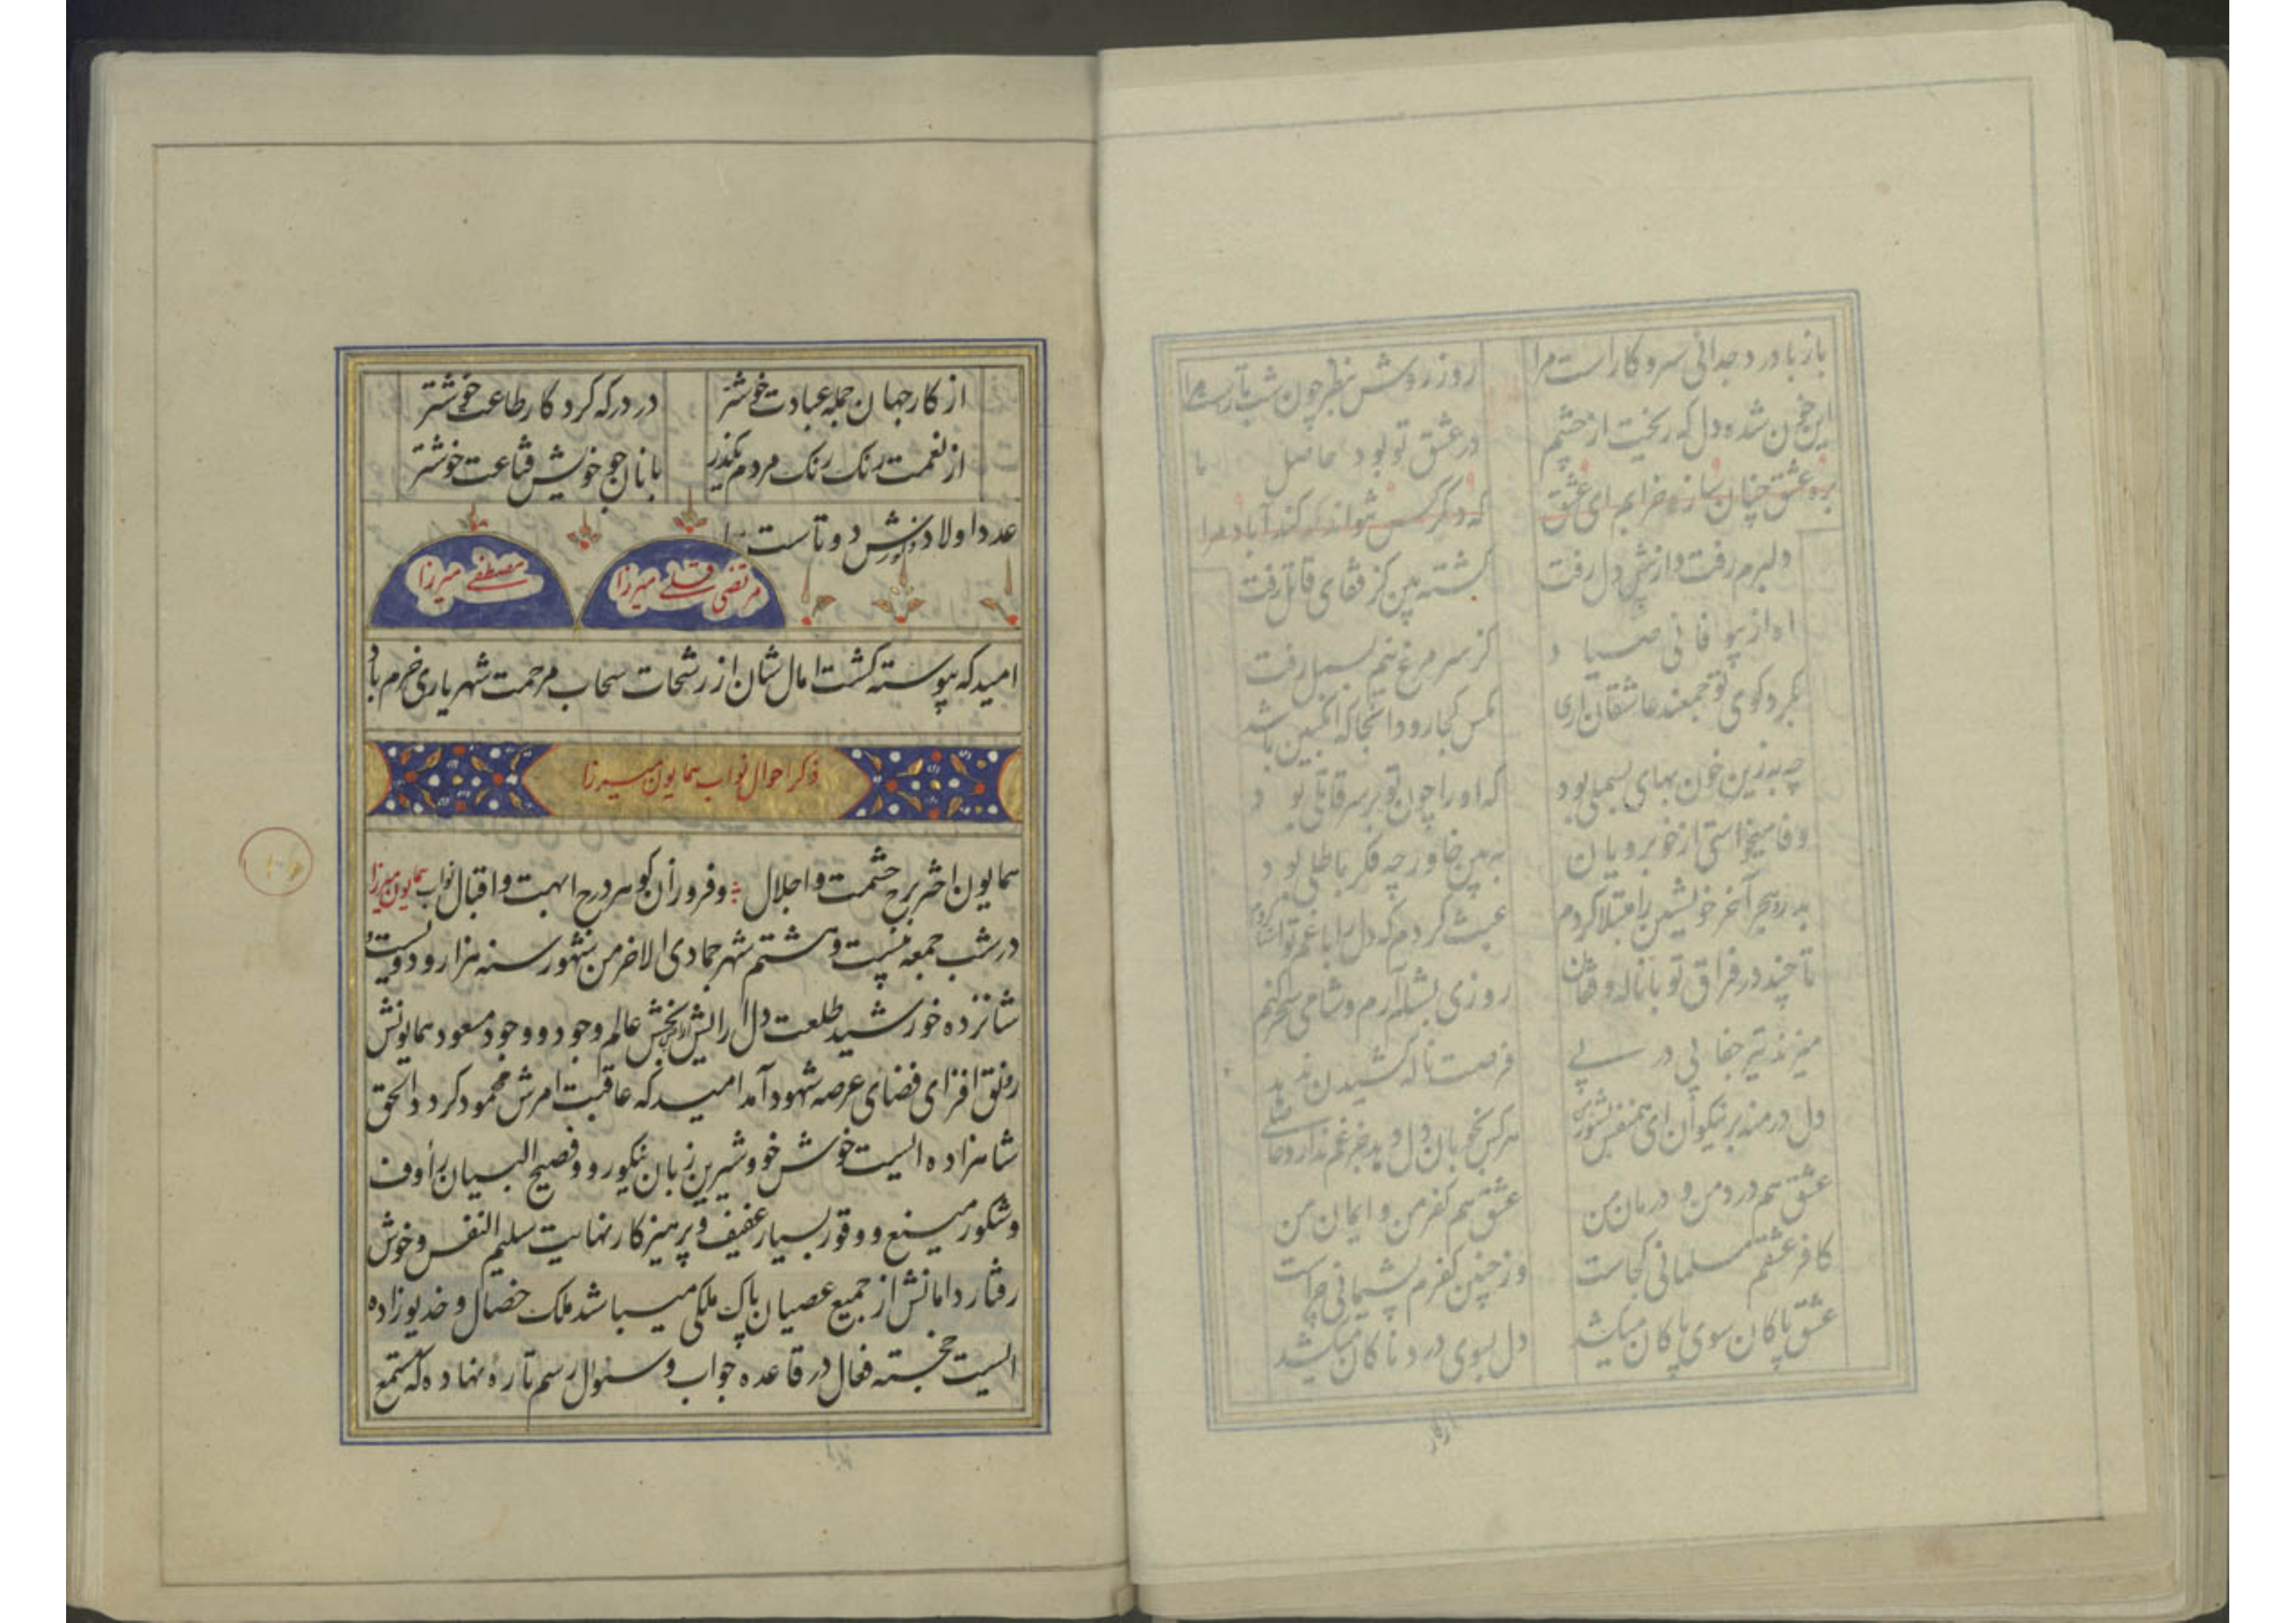 باز با درد جدائی سر و کار است مرا روز روشن بنظر چون شب تار است مرا
این خون شده دل که ریخت از چشم در عشق تو بود حاصل ما
بره عشق چنان ساز خرابم ای عشق که دگر کس نتواند که کند آباد مرا
دلبرم رفت و از پیش دل رفت کشته بین کز قفای قاتل رفت
اه از بیوفائی صیاد کز سر مرغ نیم بسمل رفت
بکرد کوی تو جمعند عاشقان اری مکس کجا رود انجا که انکبین باشد
چه به زین خون بهای بسملی بود که او را چون تو بر سر قاتلی بود
وفا میخواستی از خوبرویان به بین خاور چه فکر باطلی بود
بدرد هجر آخر خویشتن را مبتلا کردم عبث کردم که دل را با غم تو اشنا کردم
تا چند در فراق تو با ناله و فغان روزی بشب آرم و شامی سحر کنم
میزند تیر جفا پی در پی فرصت ناله کشیدن ندهد
دل در منه بر نیکوان ای همنفس هر کس بخوبان دل دهد جز غم ندارد
عشق هم درد من و درمان من عشق هم کفر من و ایمان من
کافر عشقم مسلمانی کجاست وز چنین کفرم پشیمانی چراست
عشق پاکان سوی پاکان میکشد دل بسوی دردناکان میکشد
از کار
از کار جهان جمله عبادت خوشتر در درکه کردکار طاعت خوشتر
از نعمت رنک رنک مردم بکذر با نان جو خویش قناعت خوشتر
عدد اولاد ذکورش دو تا است
مرتضی قلی میرزا مصطفی میرزا
امید که پیوسته کشت امال شان از رشحات سحاب مرحمت شهریاری خرم باد
ذکر احوال نواب همایون میرزا
همایون اختر برج حشمت و اجلال و فروزان کوهر درج ابهت و اقبال نواب همایون میرزا
در شب جمعه بیست و هشتم شهر جمادی الاخر من شهور سنه هزار و دویست و
شانزده خورشید طلعت دل ارایش زینت بخش عالم وجود و وجود مسعود همایونش
رونق افزای فضای عرصه شهود آمد امید که عاقبت امرش محمود کردد الحق
شاهزاده ایست خوش خو و شیرین زبان نیکو رو و فصیح البیان رأوف
و شکور منیع و وقور بسیار عفیف و پرهیز کار نهایت سلیم النفس و خوش
رفتار دامانش از جمیع عصیان پاک ملکی میباشد ملک خصال و خدیوزاده
ایست خجسته فعال در قاعده جواب و سئوال رسم تازه نهاده که مستمع